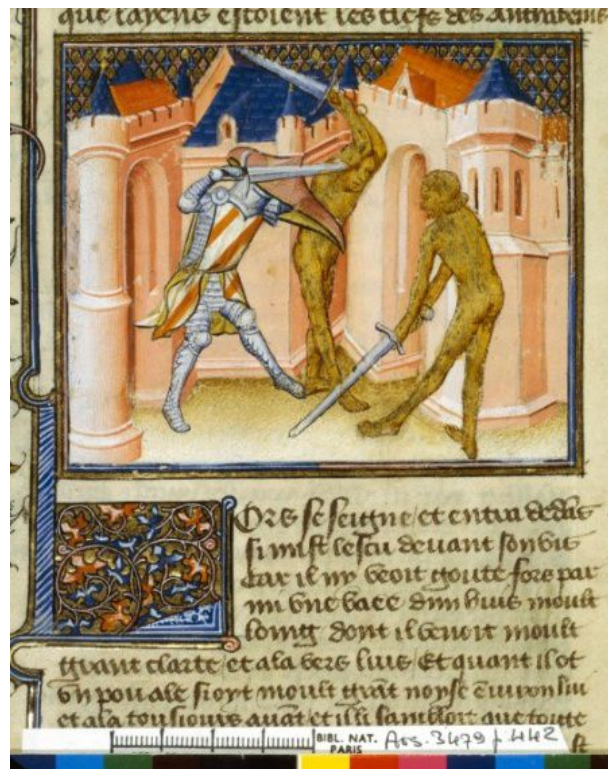 que layens estoient les clefs des enchantemens
Ors se seigne et entra dedãs
si mist lescu devant son vis
car il ny veoit goute fors par
mi vne baee dun huis moult
loing dont il venoit moult
grant clarte et ala vers luis Et quant il ot
vn pou ale si oyt moult grãt noyse ẽuiron lui
et ala tousiours auãt et illi sambloit que toute
BIBL. NAT.
PARIS
Ars. 3479 p. 442